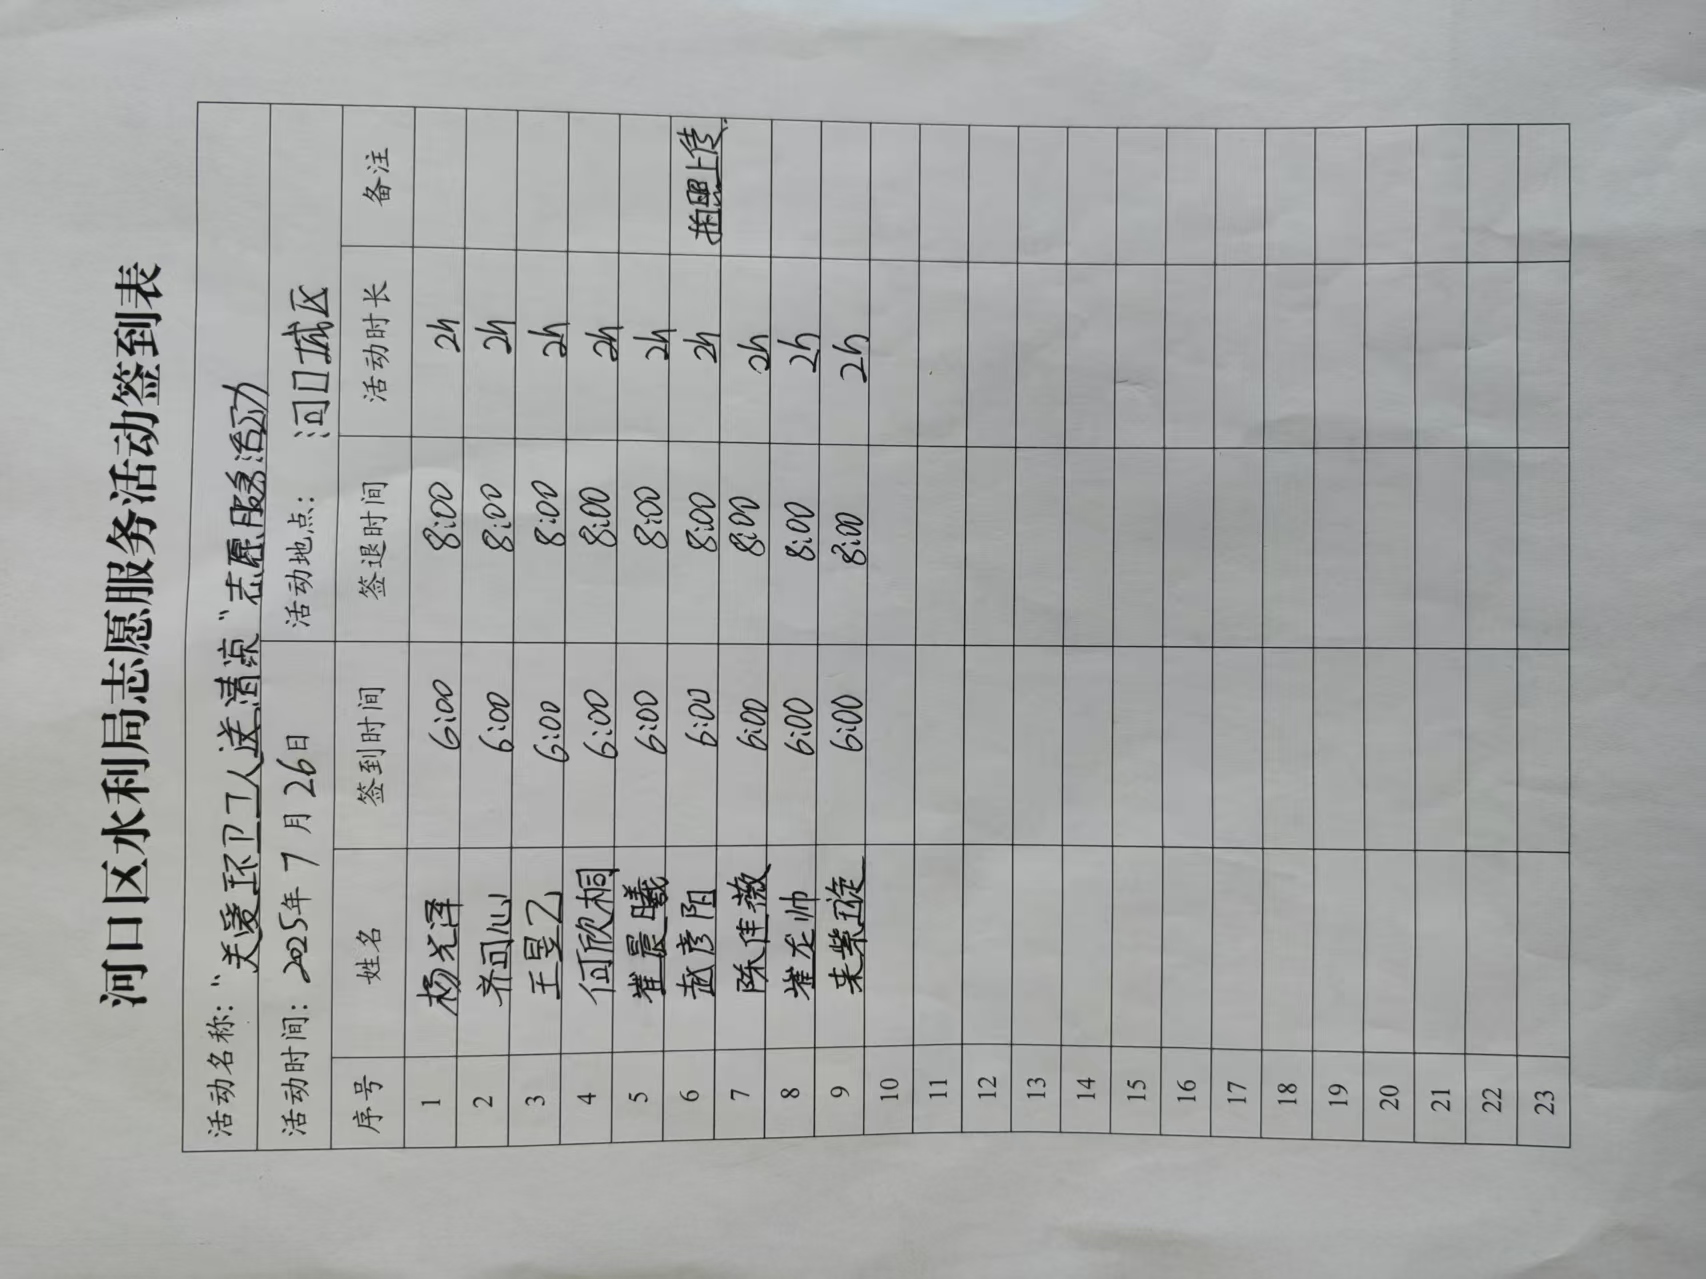 河口区水利局志愿服务活动签到表
活动名称："关爱环卫工人送清凉"志愿服务活动
活动时间：2025年 7 月 26日 活动地点： 河口城区
序号 姓名 签到时间 签退时间 活动时长 备注
1 杨光泽 6:00 8:00 2h
2 齐闻心 6:00 8:00 2h
3 王昱乙 6:00 8:00 2h
4 何欣桐 6:00 8:00 2h
5 崔晨曦 6:00 8:00 2h
6 赵彦阳 6:00 8:00 2h 拍照上传
7 陈佳薇 6:00 8:00 2h
8 崔龙帅 6:00 8:00 2h
9 朱紫璇 6:00 8:00 2h
10
11
12
13
14
15
16
17
18
19
20
21
22
23